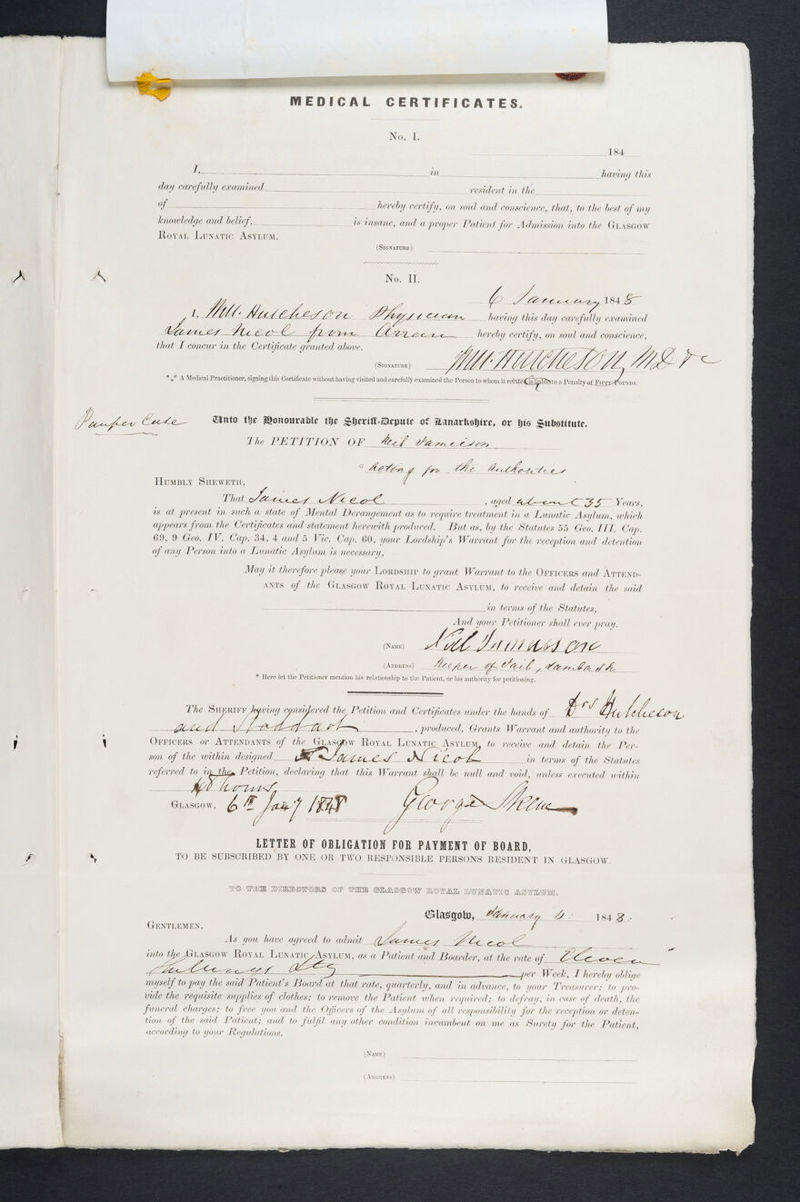 MEDICAL CERTIFICATES.
No. I.
184
I, in having this
day carefully examined resident in the
of hereby certify, on soul and conscience, that, to the best of my
knowledge and belief, is insane, and a proper Patient for Admission into the GLASGOW
ROYAL LUNATIC ASYLUM.
(SIGNATURE)
No. II.
6 January 1848
I, Wm. Hutcheson Physician having this day carefully examined
James Nicol from Arran hereby certify, on soul and conscience,
that I concur in the Certificate granted above.
(SIGNATURE) Wm. Hutcheson, MD &c
*** A Medical Practitioner, signing this Certificate without having visited and carefully examined the Person to whom it relates, is liable to a Penalty of FIFTY POUNDS.
Pauper Case
Unto the Honourable the Sheriff-Depute of Lanarkshire, or his Substitute.
The PETITION OF Neil Jamieson
* Acting for the Authorities
HUMBLY SHEWETH,
That James Nicol, aged about 35 Years,
is at present in such a state of Mental Derangement as to require treatment in a Lunatic Asylum, which
appears from the Certificates and statement herewith produced. But as, by the Statutes 55 Geo. III. Cap.
69, 9 Geo. IV. Cap. 34, 4 and 5 Vic. Cap. 60, your Lordship's Warrant for the reception and detention
of any Person into a Lunatic Asylum is necessary,
May it therefore please your LORDSHIP to grant Warrant to the OFFICERS and ATTEND-
ANTS of the GLASGOW ROYAL LUNATIC ASYLUM, to receive and detain the said
in terms of the Statutes,
And your Petitioner shall ever pray.
(NAME) Neil Jamieson
(ADDRESS) Keeper of Jail, Lamlash
* Here let the Petitioner mention his relationship to the Patient, or his authority for petitioning.
The SHERIFF having considered the Petition and Certificates under the hands of Drs Hutcheson
and Stoddart, produced, Grants Warrant and authority to the
OFFICERS or ATTENDANTS of the GLASGOW ROYAL LUNATIC ASYLUM, to receive and detain the Per-
son of the within designed James Nicol in terms of the Statutes
referred to in the Petition, declaring that this Warrant shall be null and void, unless executed within
48 hours
GLASGOW, 6th Jany 1848 George Skene
LETTER OF OBLIGATION FOR PAYMENT OF BOARD,
TO BE SUBSCRIBED BY ONE OR TWO RESPONSIBLE PERSONS RESIDENT IN GLASGOW.
TO THE DIRECTORS OF THE GLASGOW ROYAL LUNATIC ASYLUM.
Glasgow, January 6. 1848.
GENTLEMEN,
As you have agreed to admit James Nicol
into the GLASGOW ROYAL LUNATIC ASYLUM, as a Patient and Boarder, at the rate of Eleven
Shillings Stg per Week, I hereby oblige
myself to pay the said Patient's Board at that rate, quarterly, and in advance, to your Treasurer; to pro-
vide the requisite supplies of clothes; to remove the Patient when required; to defray, in case of death, the
funeral charges; to free you and the Officers of the Asylum of all responsibility for the reception or deten-
tion of the said Patient; and to fulfil any other condition incumbent on me as Surety for the Patient,
according to your Regulations.
(NAME)
(ADDRESS)